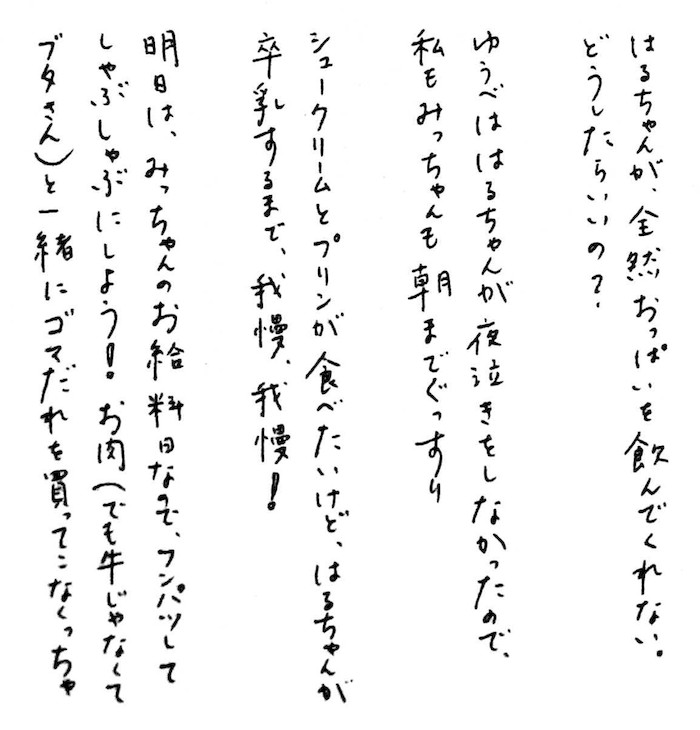 はるちゃんが、全然おっぱいを飲んでくれない。
どうしたらいいの？
ゆうべははるちゃんが夜泣きをしなかったので、
私もみっちゃんも朝までぐっすり
シュークリームとプリンが食べたいけど、はるちゃんが
卒乳するまで、我慢、我慢！
明日は、みっちゃんのお給料日なので、フンパツして
しゃぶしゃぶにしよう！お肉（でも牛じゃなくて
ブタさん）と一緒にゴマだれを買ってこなくっちゃ